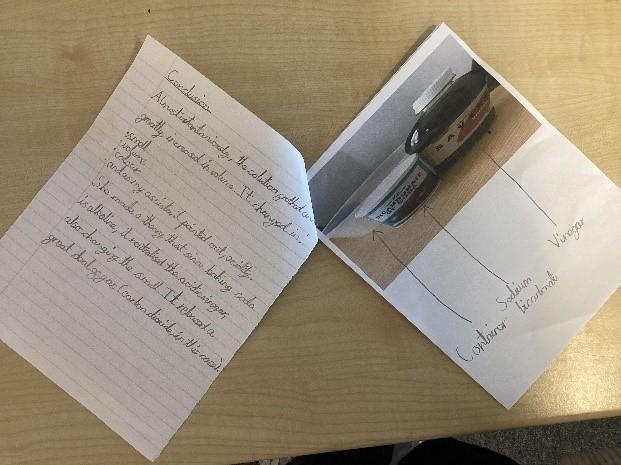 Conclusion
Almost instantaneously, the solution
greatly increased in volume. It changed in:
smell
volume
colour
and as my assistant pointed out, acidity.
She made a theory that since baking soda
is alkaline, it neutralised the acidic vinegar,
also changing the smell. It released a
great deal of gas (carbon dioxide, in this case).
Container
Sodium
bicarbonate
Vinegar